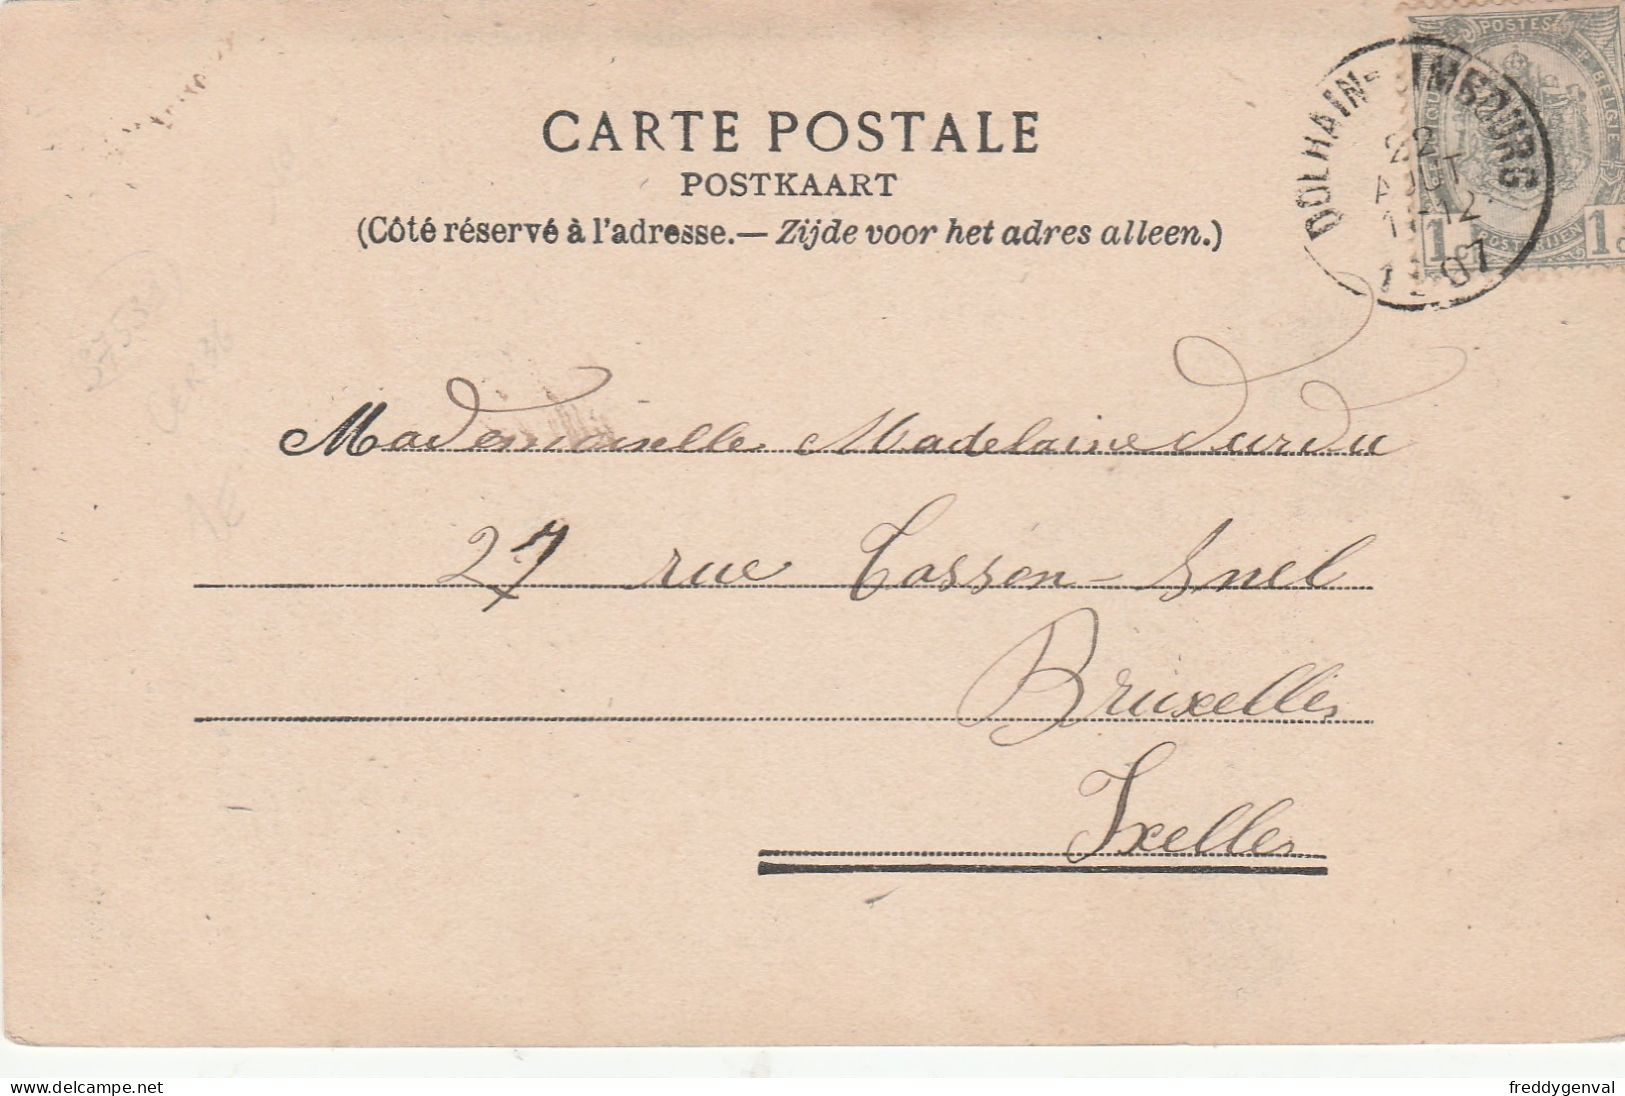 CARTE POSTALE
POSTKAART
(Côté réservé à l'adresse.— Zijde voor het adres alleen.)
POSTES
BELGIE
1 POSTERIJEN 1
DOLHAIN-LIMBOURG
22
AOUT
11-12
07
Mademoiselle Madelaine Durdu
27 rue Cosson-Snel
Bruxelles
Ixelles
delcampe.net
freddygenval